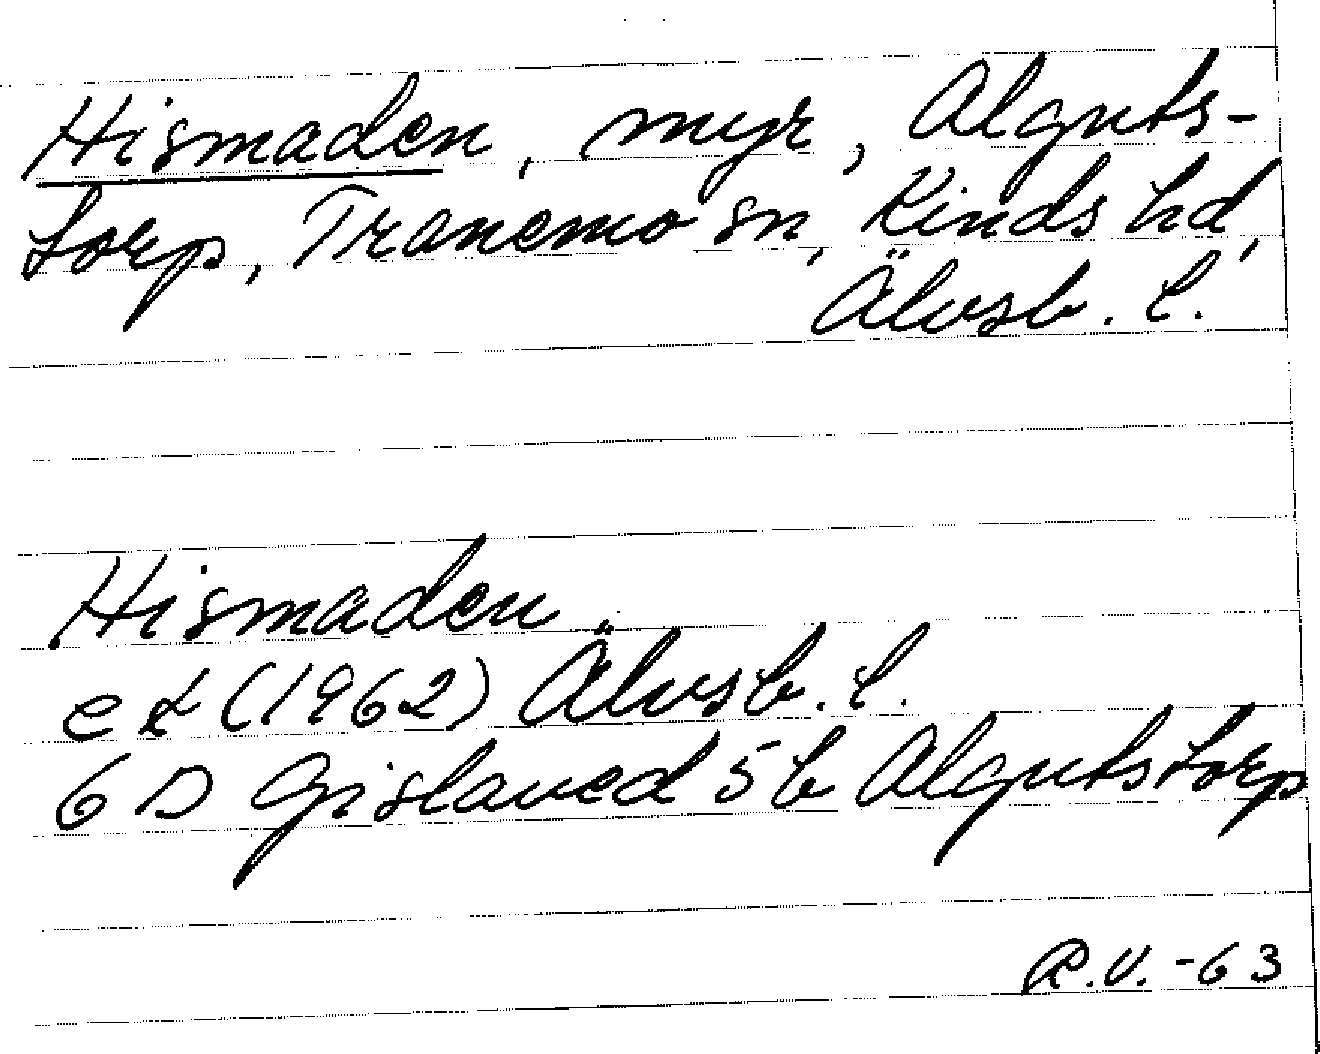 Hismaden, myr, Alguts-
torp, Tranemo sn, Kinds hd,
Älvsb. l.
Hismaden
ek (1962) Älvsb. l.
6 D Gislaved 5 b Algutstorp
R.V. -63